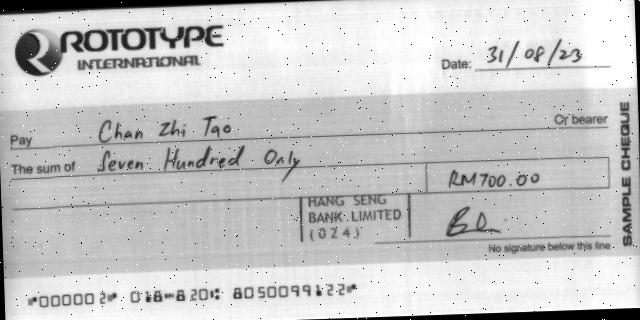 ROTOTYPE
INTERNATIONAL
Date: 31/08/23
Pay Chan Zhi Tao Or bearer
The sum of Seven Hundred Only
RM700.00
HANG SENG
BANK LIMITED
(024)
No signature below this line
SAMPLE CHEQUE
⑈000002⑈ 018⑉820⑆ 805099122⑈